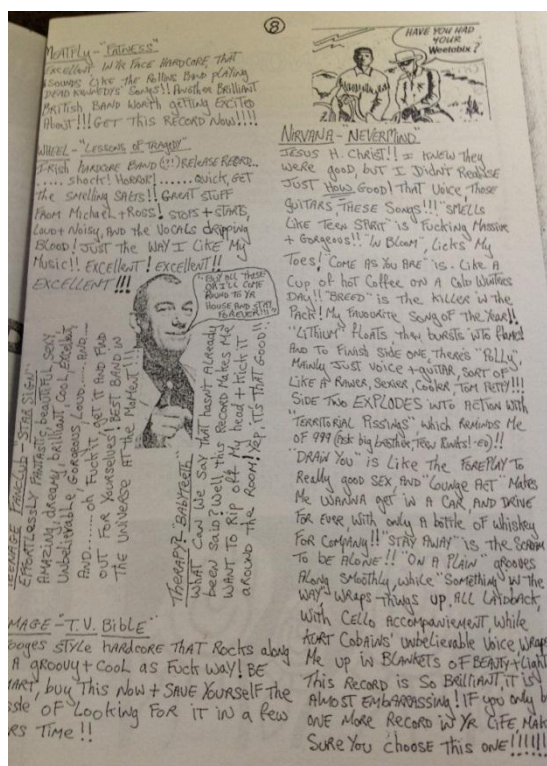 8
MEATFLY - "FATNESS"
EXCELLENT IN YR FACE HARDCORE, THAT
SOUNDS LIKE THE ROLLINS BAND PLAYING
DEAD KENNEDYS' SONGS!! ANOTHER BRILLIANT
BRITISH BAND WORTH GETTING EXCITED
ABOUT!!! GET THIS RECORD NOW!!!!
WHEEL - "LESSONS OF TRAGEDY"
IRISH HARDCORE BAND (!!!) RELEASE RECORD..
...... SHOCK! HORROR! ...... QUICK, GET
THE SMELLING SALTS!! GREAT STUFF
FROM MICHAEL + ROSS! STOPS + STARTS,
LOUD + NOISY, AND THE VOCALS DRIPPING
BLOOD! JUST THE WAY I LIKE MY
MUSIC!! EXCELLENT! EXCELLENT!!
EXCELLENT!!!
"EAT ALL THESE
OR I'LL COME
ROUND TO YR
HOUSE AND STAY
FOREVER!!!"
TEENAGE FANCLUB - STAR SIGN
EFFORTLESSLY FANTASTIC, BEAUTIFUL, SEXY
AMAZING, DREAMY, BRILLIANT, COOL, EXCELLENT,
UNBELIEVABLE, GORGEOUS, LOUD...... AND....
AND......... OH FUCK IT, GET IT AND FIND
OUT FOR YOURSELVES! BEST BAND IN
THE UNIVERSE AT THE MOMENT!!!
THERAPY? - BABYTEETH"
WHAT CAN WE SAY THAT HASN'T ALREADY
BEEN SAID? WELL, THIS RECORD MAKES ME
WANT TO RIP OFF MY HEAD + KICK IT
AROUND THE ROOM! YEP, IT'S THAT GOOD!!
MAGE - "T.V. BIBLE"
OOGES STYLE HARDCORE THAT ROCKS ALONG
A GROOVY + COOL AS FUCK WAY! BE
MART, BUY THIS NOW + SAVE YOURSELF THE
SSLE OF LOOKING FOR IT IN A FEW
RS TIME!!
HAVE YOU HAD
YOUR
Weetabix?
NIRVANA - "NEVERMIND"
JESUS H. CHRIST!! I KNEW THEY
WERE GOOD, BUT I DIDN'T REALISE
JUST HOW GOOD! THAT VOICE, THOSE
GUITARS, THESE SONGS!!! "SMELLS
LIKE TEEN SPIRIT" IS FUCKING MASSIVE
+ GORGEOUS!! "IN BLOOM", LICKS MY
TOES! "COME AS YOU ARE" IS LIKE A
CUP OF HOT COFFEE ON A COLD WINTERS
DAY!! "BREED" IS THE KILLER IN THE
PACK! MY FAVOURITE SONG OF THE YEAR!!
"LITHIUM" FLOATS THEN BURSTS INTO FLAMES
AND TO FINISH SIDE ONE, THERE'S "POLLY",
MAINLY JUST VOICE + GUITAR, SORT OF
LIKE A RAWER, SEXIER, COOLER, TOM PETTY!!!
SIDE TWO EXPLODES INTO ACTION WITH
"TERRITORIAL PISSINGS" WHICH REMINDS ME
OF 999 (ASK BIG BROTHER, TEEN PUNKS! -ED)!!
"DRAIN YOU" IS LIKE THE FOREPLAY TO
REALLY GOOD SEX, AND "LOUNGE ACT" MAKES
ME WANNA GET IN A CAR, AND DRIVE
FOR EVER, WITH ONLY A BOTTLE OF WHISKEY
FOR COMPANY!! "STAY AWAY" IS THE SCREAM
TO BE ALONE!! "ON A PLAIN" GROOVES
ALONG SMOOTHLY, WHILE "SOMETHING IN THE
WAY", WRAPS THINGS UP, ALL LAIDBACK,
WITH CELLO ACCOMPANIEMENT, WHILE
KURT COBAINS' UNBELIEVABLE VOICE WRAPS
ME UP IN BLANKETS OF BEAUTY + LIGHT
THIS RECORD IS SO BRILLIANT, IT IS
ALMOST EMBARRASSING! IF YOU ONLY B
ONE MORE RECORD IN YR LIFE, MAK
SURE YOU CHOOSE THIS ONE!!!!!!